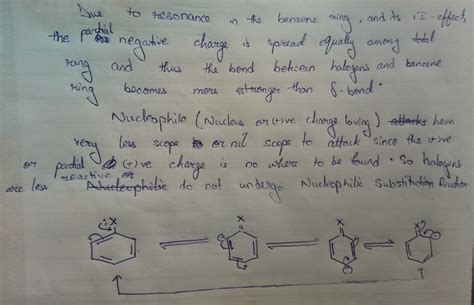 Due to resonance in the benzene ring, and its +I-effect,
the partial negative charge is spread equally among total
ring and thus the bond between halogens and benzene
ring becomes more stronger than δ-bond.
Nucleophile (Nucleus or (+)ve charge loving) attacks have
very less scope to or nil scope to attack since the (+)ve
or partial (+)ve charge is no where to be found. So halogens
are less reactive or Nucleophilic do not undergo Nuclophilic Substitution Reaction.
X
X
X
X